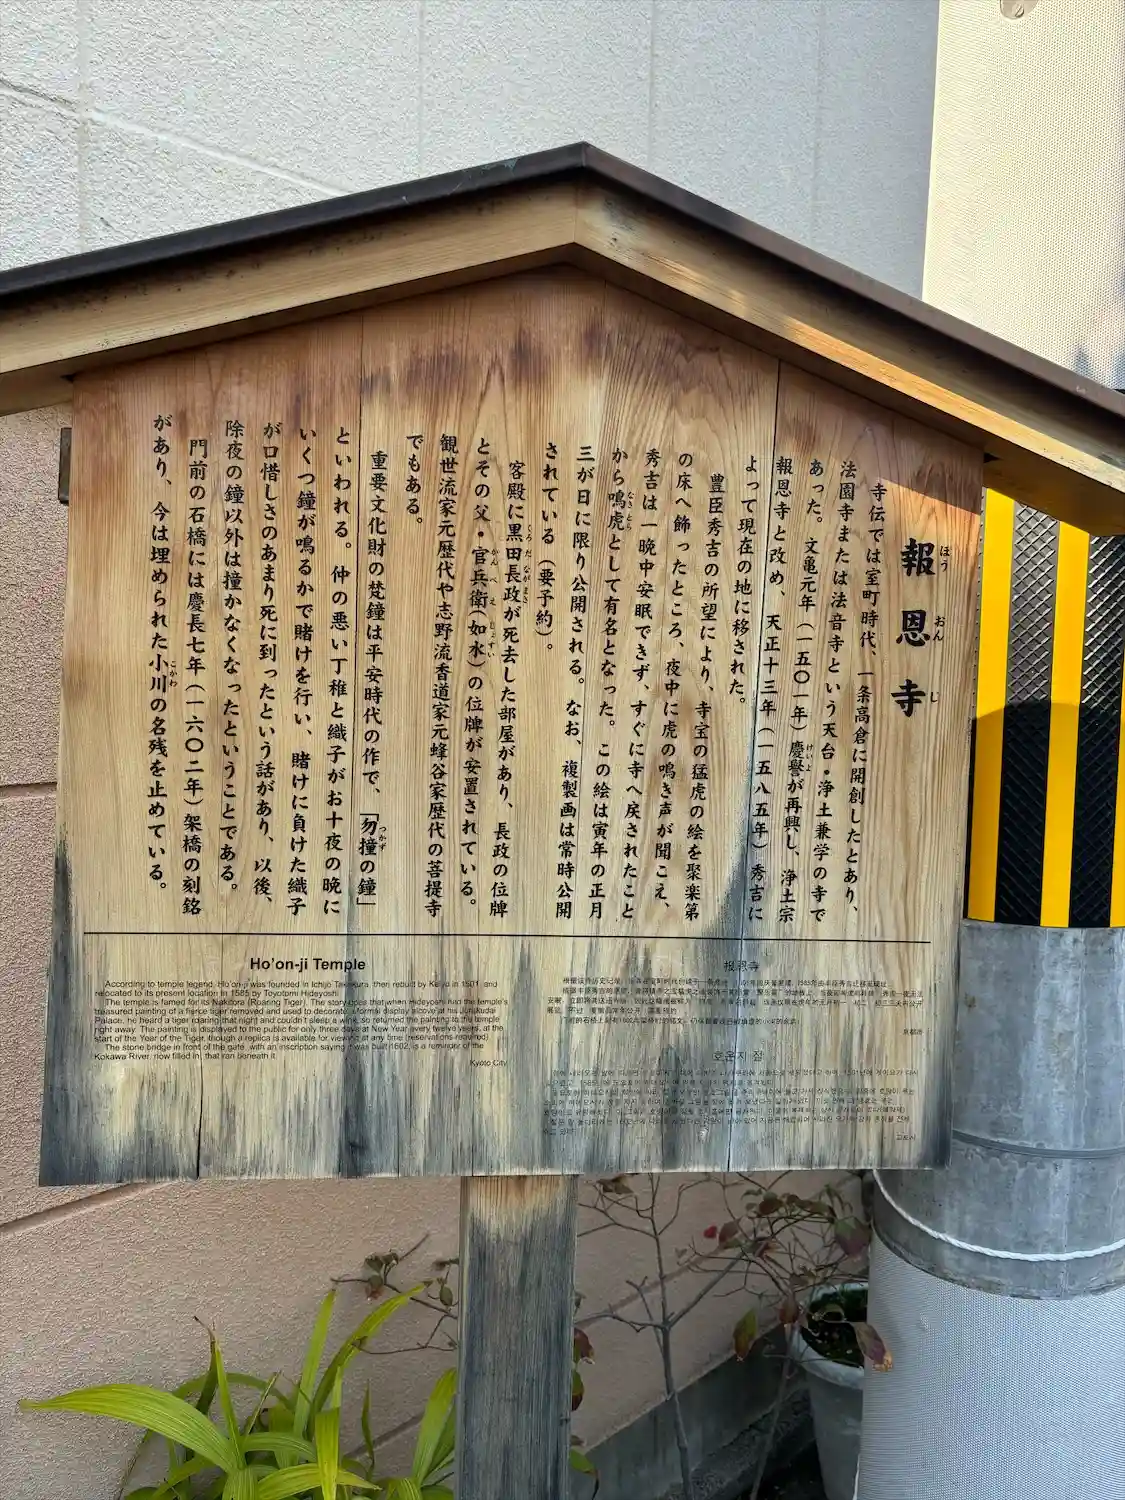 報恩寺
ほうおんじ
寺伝では室町時代、一条高倉に開創したとあり、
法園寺または法音寺という天台・浄土兼学の寺で
あった。文亀元年（一五〇一年）慶誉が再興し、浄土宗
けいよ
報恩寺と改め、天正十三年（一五八五年）秀吉に
よって現在の地に移された。
豊臣秀吉の所望により、寺宝の猛虎の絵を聚楽第
の床へ飾ったところ、夜中に虎の鳴き声が聞こえ、
秀吉は一晩中安眠できず、すぐに寺へ戻されたこと
から鳴虎として有名となった。この絵は寅年の正月
なきとら
三が日に限り公開される。なお、複製画は常時公開
されている（要予約）。
客殿に黒田長政が死去した部屋があり、長政の位牌
くろだながまさ
とその父・官兵衛（如水）の位牌が安置されている。
かんべえ じょすい
観世流家元歴代や志野流香道家元蜂谷家歴代の菩提寺
でもある。
重要文化財の梵鐘は平安時代の作で、「勿撞の鐘」
つかず
といわれる。仲の悪い丁稚と織子がお十夜の晩に
いくつ鐘が鳴るかで賭けを行い、賭けに負けた織子
が口惜しさのあまり死に到ったという話があり、以後、
除夜の鐘以外は撞かなくなったということである。
門前の石橋には慶長七年（一六〇二年）架橋の刻銘
があり、今は埋められた小川の名残を止めている。
こかわ
Ho'on-ji Temple
According to temple legend, Ho'on-ji was founded in Ichijo Takakura, then rebuilt by Keiyo in 1501, and
relocated to its present location in 1585 by Toyotomi Hideyoshi.
The temple is famed for its Nakitora (Roaring Tiger). The story goes that when Hideyoshi had the temple's
treasured painting of a fierce tiger removed and used to decorate a formal display alcove at his Jurakudai
Palace, he heard a tiger roaring that night and couldn't sleep a wink, so returned the painting to the temple
right away. The painting is displayed to the public for only three days at New Year every twelve years, at the
start of the Year of the Tiger, though a replica is available for viewing at any time (reservations required).
The stone bridge in front of the gate, with an inscription saying it was built 1602, is a reminder of the
Kokawa River, now filled in, that ran beneath it.
Kyoto City
报恩寺
京都市
호온지 절
교토시